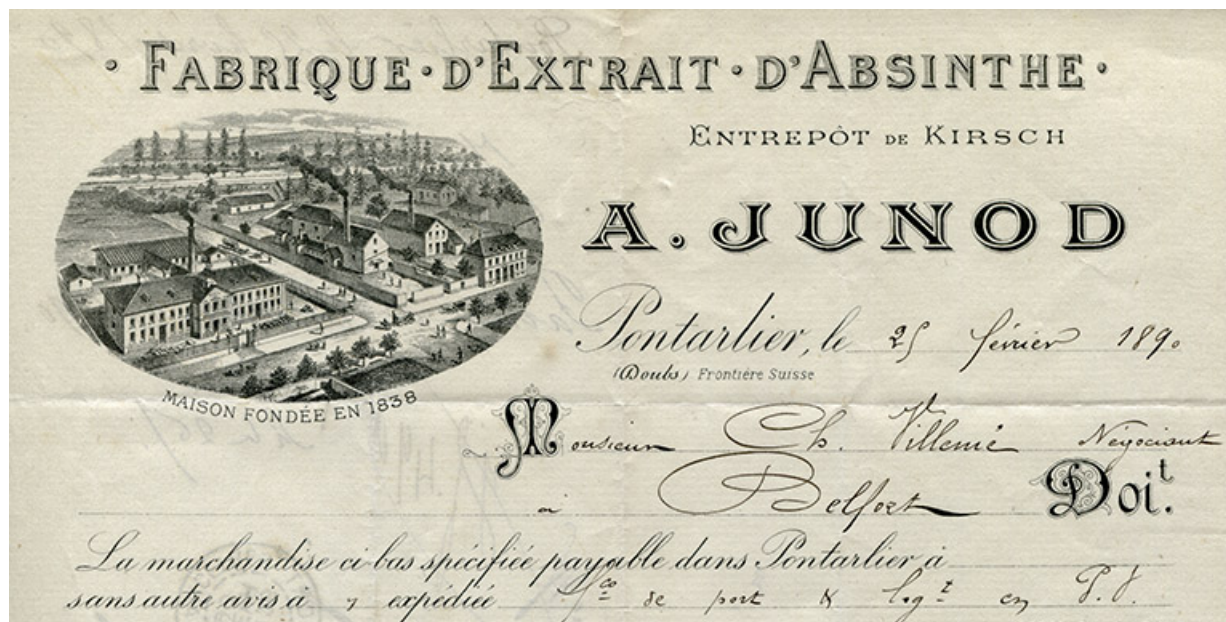 · FABRIQUE · D'EXTRAIT · D'ABSINTHE ·
ENTREPÔT DE KIRSCH
A. JUNOD
MAISON FONDÉE EN 1838
Pontarlier, le 25 février 1890
(Doubs) Frontière Suisse
Monsieur Ch. Négociant
à Belfort Doit.
La marchandise ci-bas spécifiée payable dans Pontarlier à
sans autre avis à expédiée fco de port & log.t en P. V.